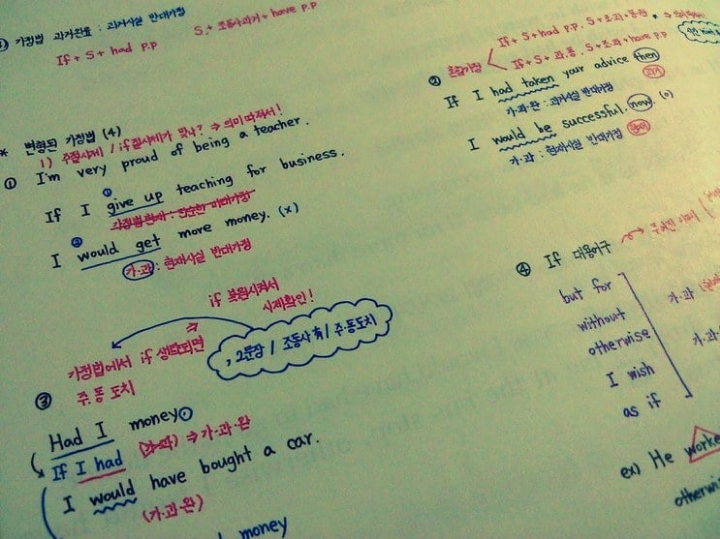 가정법 과거완료 : 과거사실 반대가정
If + S + had p.p S + 조동사과거 + have p.p
* 변형된 가정법 (4)
1) 주절시제 / if절시제가 맞나? ⇒ 의미따져서!
① I'm very proud of being a teacher.
①
If I give up teaching for business.
가정법현재 : 단순한 미래가정
②
I would get more money. (x)
가·과 : 현재사실 반대가정
if 복원시켜서
시제확인!
, 2문장 / 조동사 有 / 주·동도치
가정법에서 if 생략되면
주·동 도치
③
Had I money
If I had (가·과) ⇒ 가·과·완
I would have bought a car.
(가·과완)
money
② 혼합가정
If + S + had p.p. S + 조·과 + 동원
If + S + 과·동. S + 조과 + have p.p
If I had taken your advice then
과거
가·과·완 : 과거사실 반대가정
I would be successful. now. (o)
가·과 : 현재사실 반대가정 현재
④ If 대용어구
but for
without
otherwise
I wish
as if
가·과
가·과·
ex) He worke
otherwi